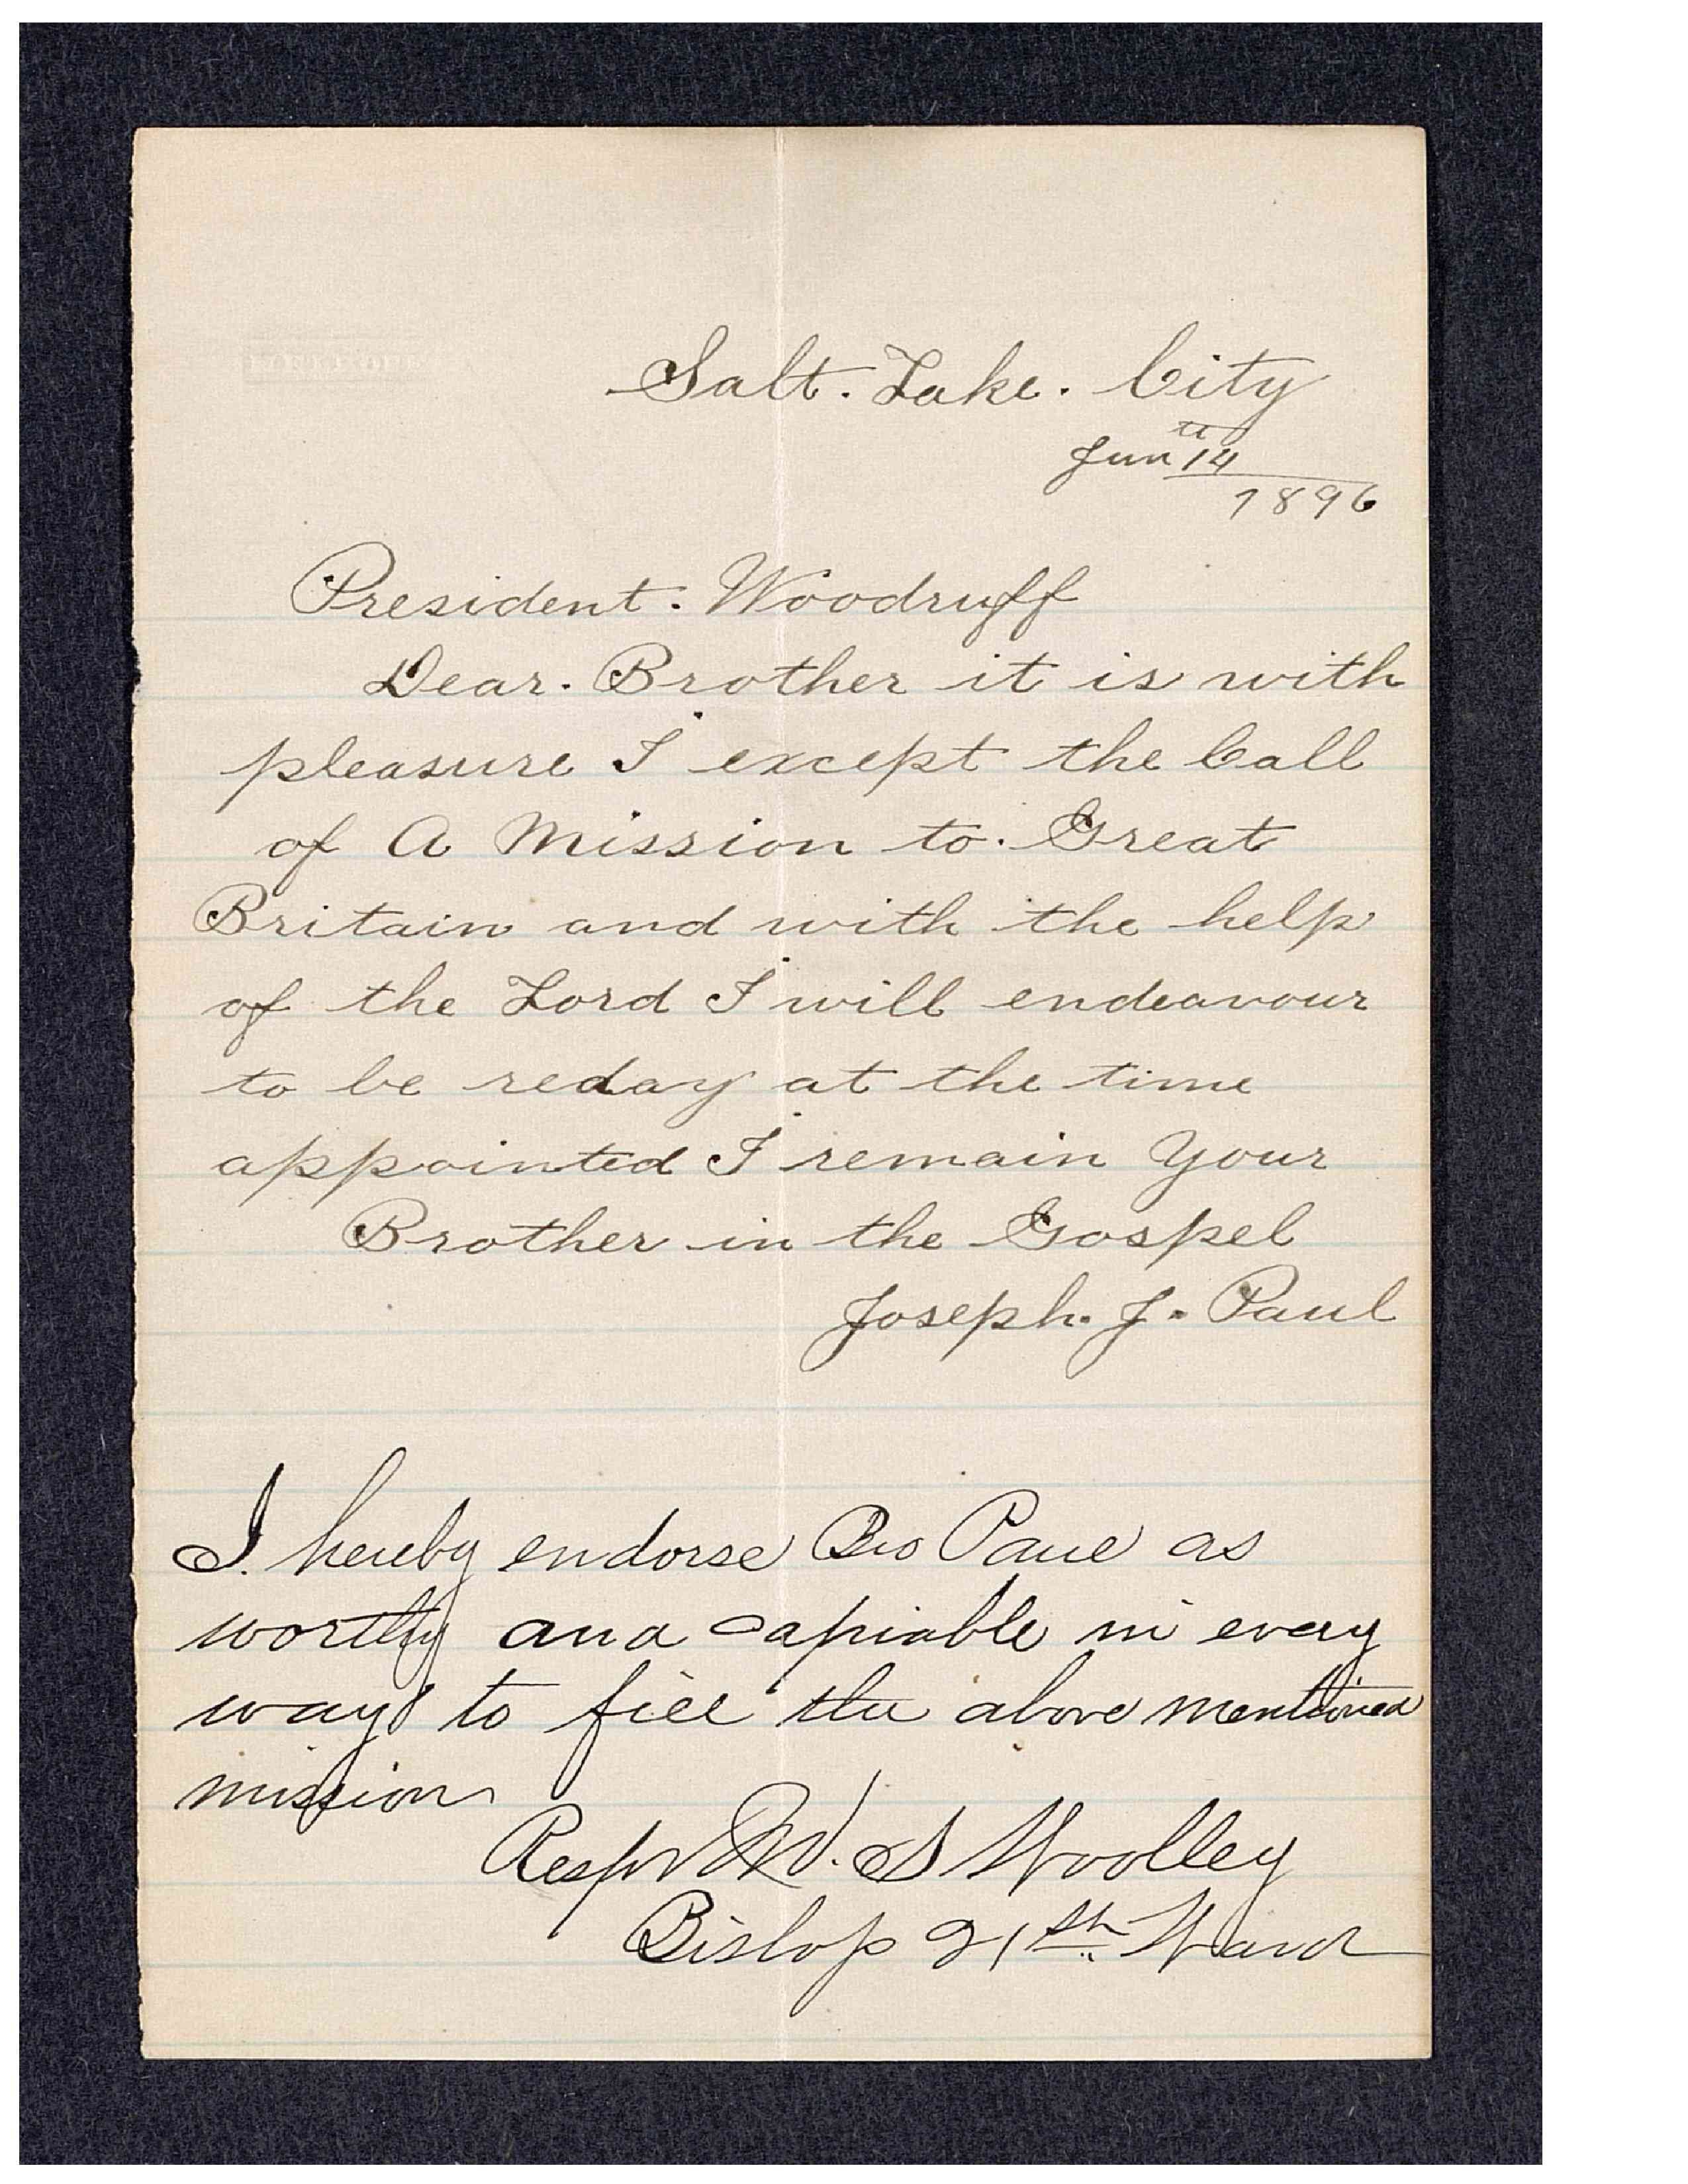 Salt. Lake. City
Jun 14th
1896
President. Woodruff
Dear. Brother it is with
pleasure I except the Call
of A Mission to. Great
Britain and with the help
of the Lord I will endeavour
to be reday at the time
appointed I remain Your
Brother in the Gospel
Joseph. J. Paul
I. hereby endorse Bro Paul as
worthy and capiable in every
way to fill the above mentioned
mission
Resp M. S Woolley
Bishop 21st Ward